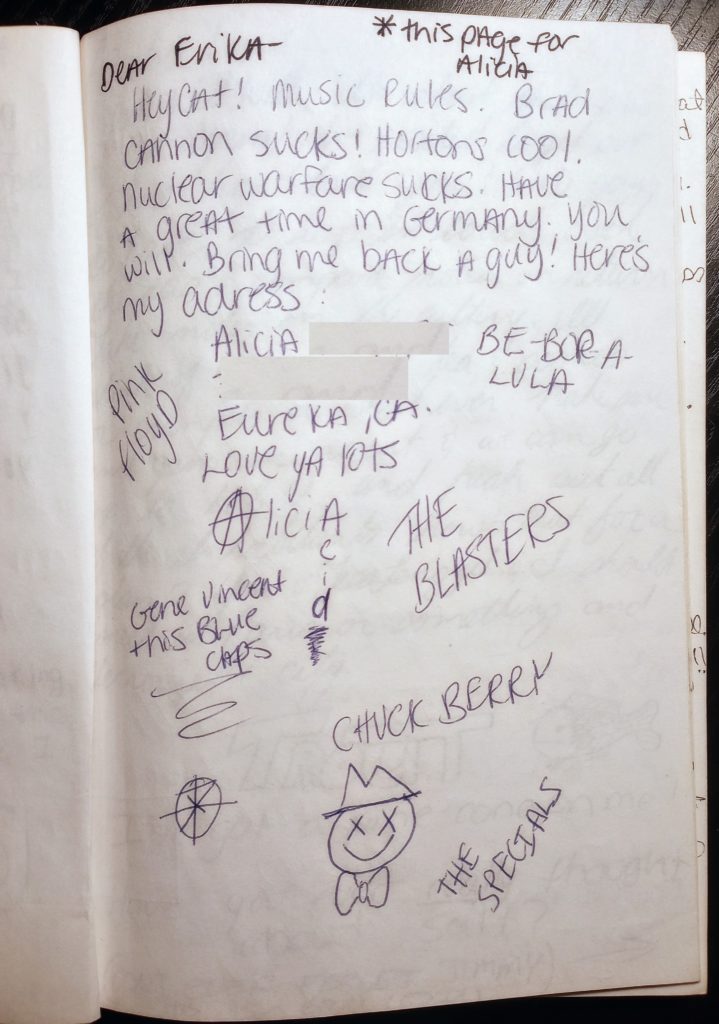 Dear Erika-
*this page for
Alicia
Hey Cat! Music Rules. Brad
Cannon sucks! Hortons cool.
nuclear warfare sucks. Have
a great time in Germany. You
will. Bring me back a guy! Here's
my adress:
Alicia
Eureka, CA.
Love ya lots
Alicia
Acid
BE-BOR-A-
LULA
Pink
Floyd
THE
BLASTERS
Gene Vincent
+his Blue
Caps
CHUCK BERRY
THE
SPECIALS